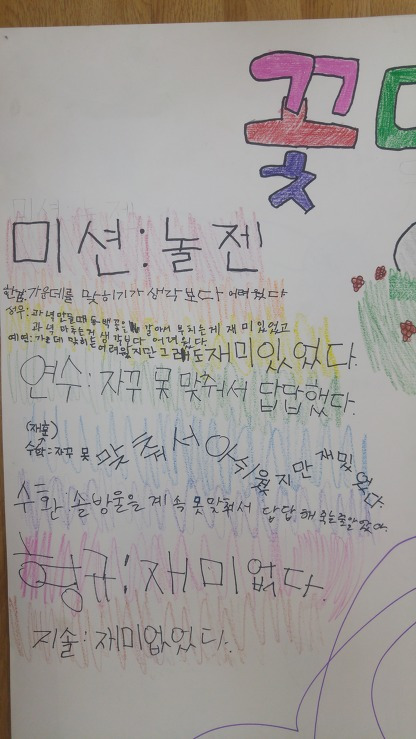 꽃
미션:놀젠
한결:가운데를 맞히기가 생각보다 어려웠다
정우: 과녁만들때 동백꽃을 갈아서 부치는게 재미있었고
과녁 마추는건 생각보다 어려웠다.
예연: 가운데 맞히는 어려웠지만 그래도 재미있었다.
연수: 자꾸 못 맞춰서 답답했다.
(재훈)
수학: 자꾸 못 맞춰서 아쉬웠지만 재밌었다.
수환: 솔방울을 계속 못맞춰서 답답해 죽는줄알았다.
형규: 재미없다.
지솔: 재미없었다.